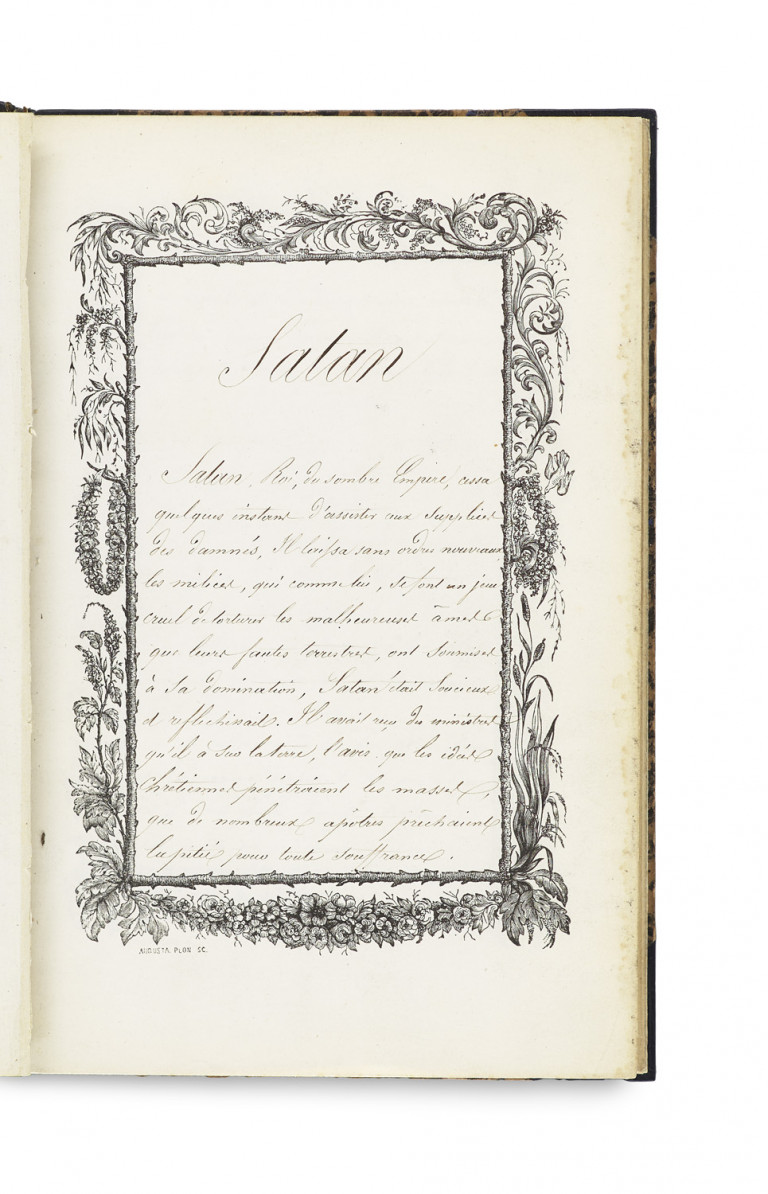 Satan
Satan, Roi, du sombre Empire, cessa
quelques instant d'assister aux Supplices
des damnés, Il laissa sans ordres nouveaux
les milices, qui comme lui, se font un jeu
cruel de torturer les malheureuses âmes
que leurs fautes terrestres, ont soumises
à sa domination, Satan était soucieux
et reflechissait. Il avait reçu des ministres
qu'il à sur la terre, l'avis que les idées
Chrétiennes pénétraient les masses,
que de nombreux apôtres prêchaient
la pitié pour toute souffrance.
AUGUSTA PLON SC.